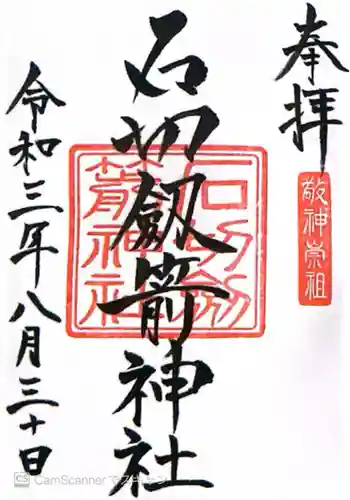 奉拝
敬神崇祖
石切劔箭神社
石切劔
箭神社
令和三年八月三十日
CS CamScanner でスキャン